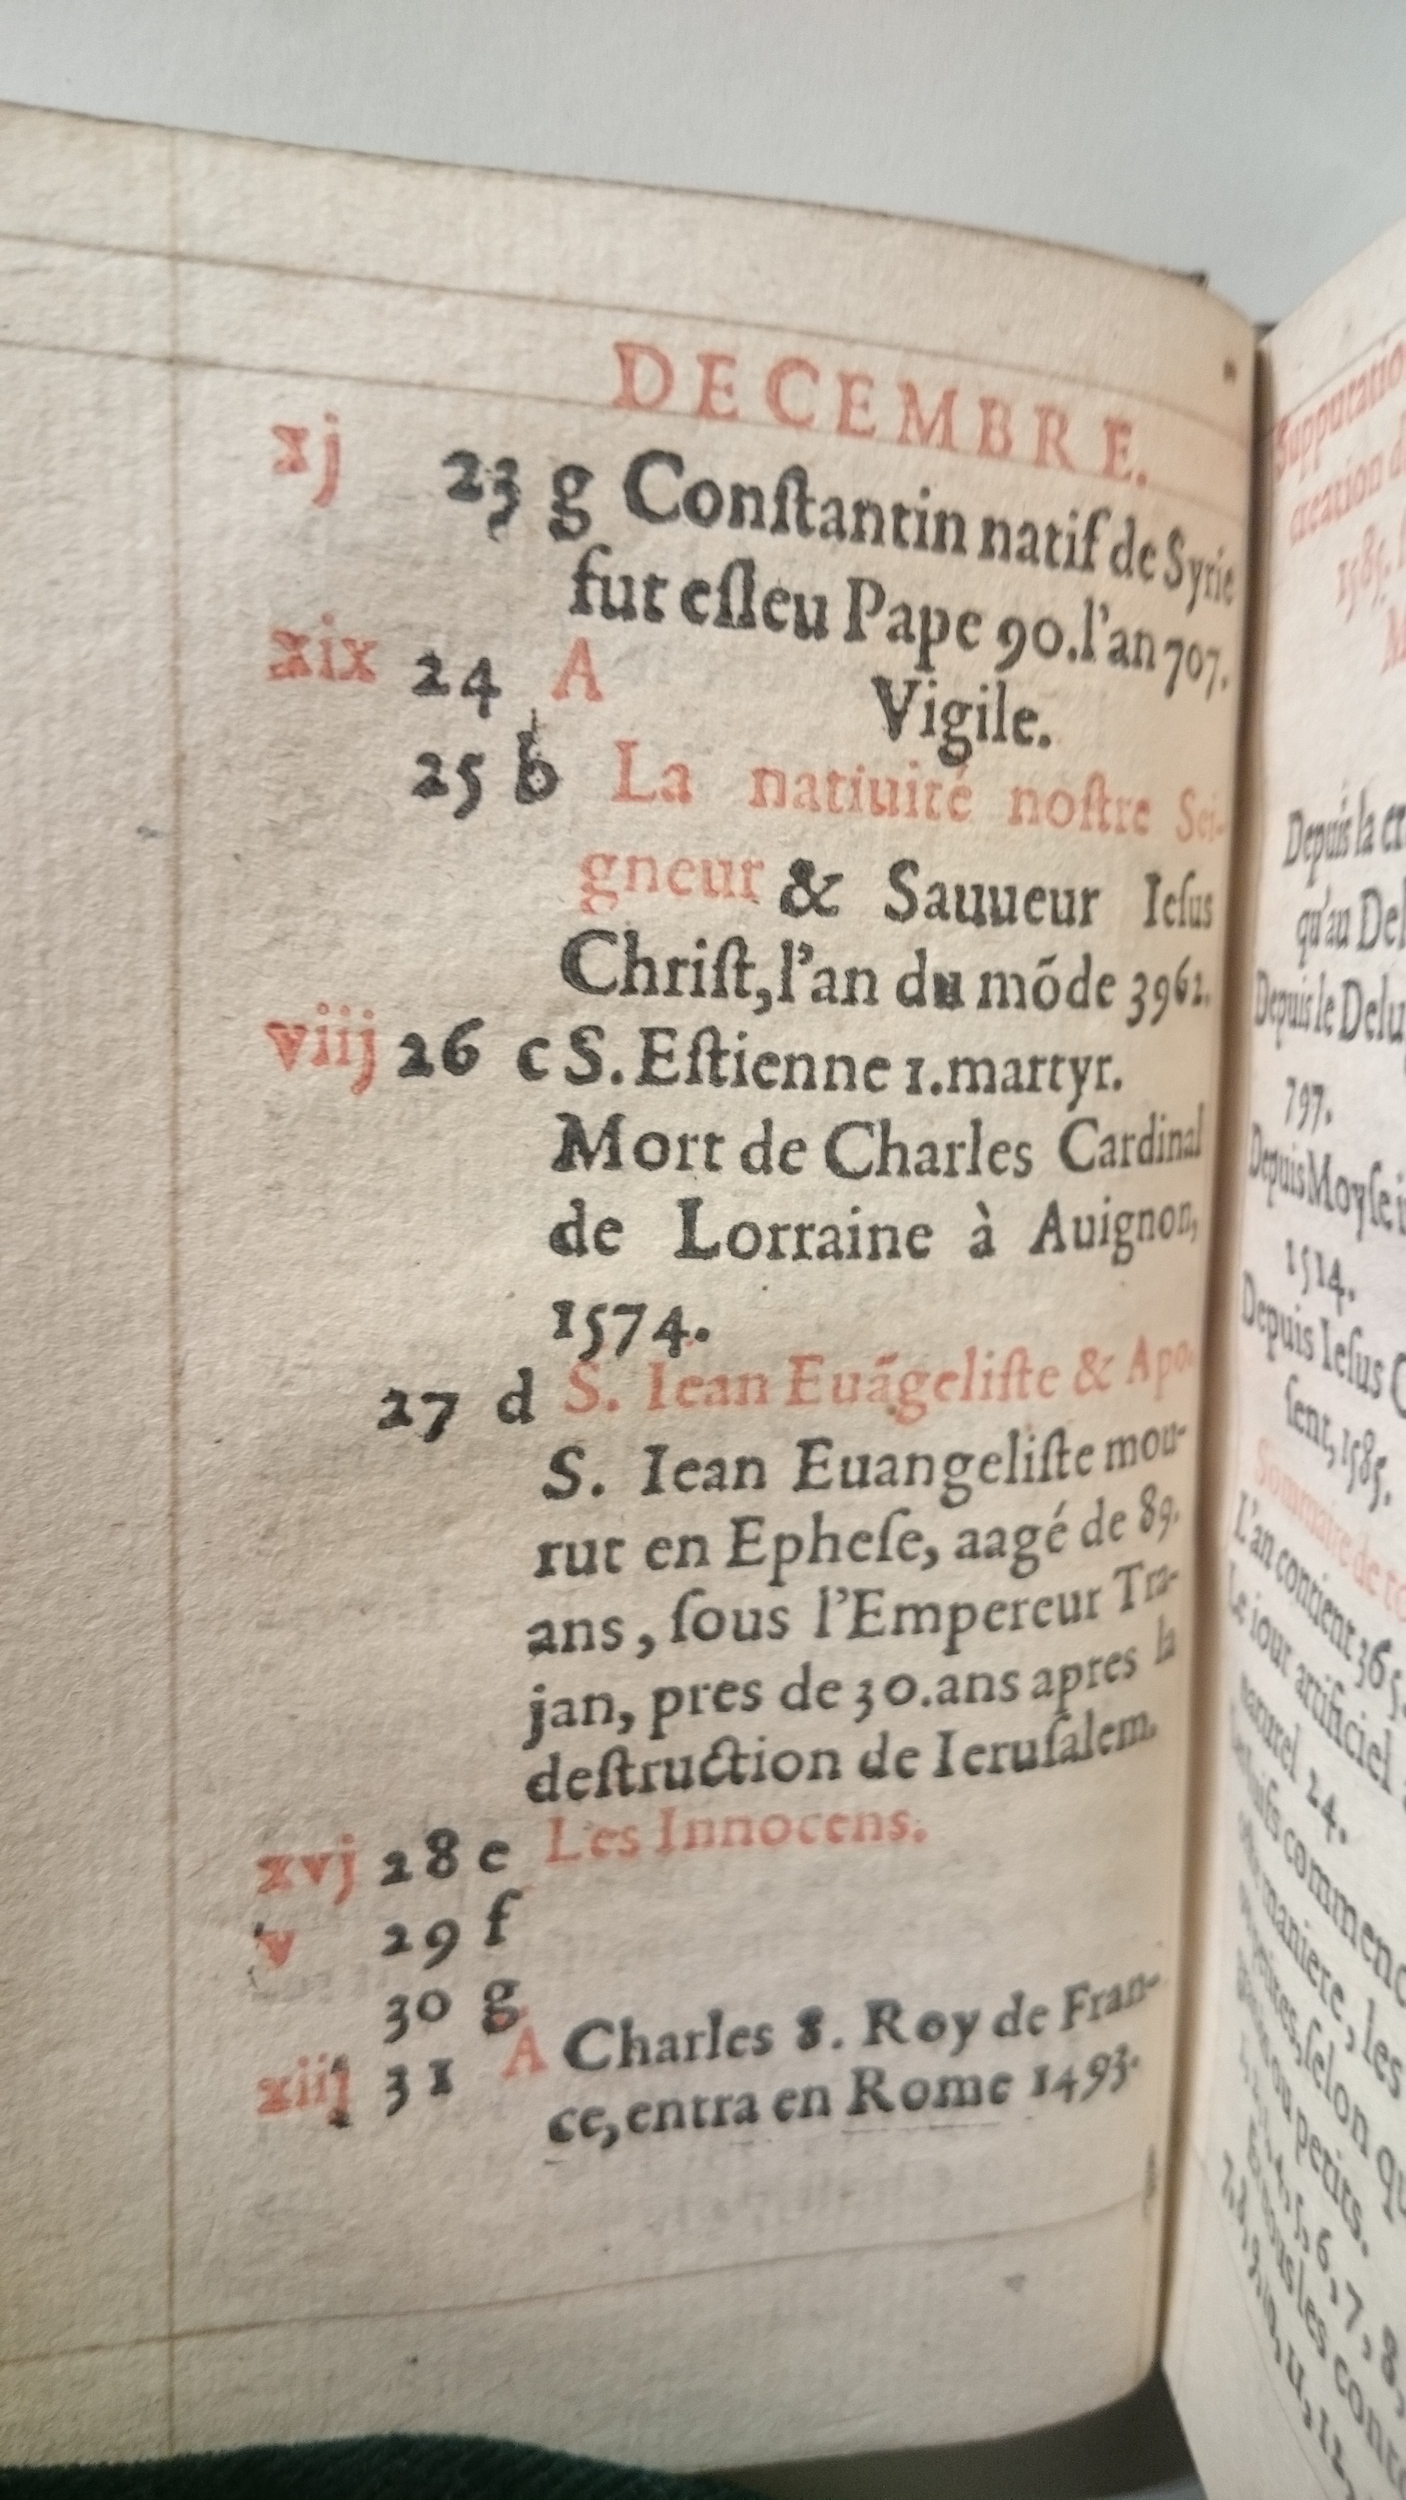 DECEMBRE.
xj 23 g Conſtantin natif de Syrie
fut eſleu Pape 90. l'an 707.
xix 24 A Vigile.
25 b La natiuité noſtre Sei-
gneur & Sauueur Ieſus
Chriſt, l'an du mõde 3962.
viij 26 c S. Eſtienne 1. martyr.
Mort de Charles Cardinal
de Lorraine à Auignon,
1574.
27 d S. Iean Euãgeliſte & Apo.
S. Iean Euangeliſte mou-
rut en Epheſe, aagé de 89.
ans, ſous l'Empereur Tra-
jan, pres de 30. ans apres la
deſtruction de Ieruſalem.
xvj 28 e Les Innocens.
v 29 f
30 g
xiij 31 A Charles 8. Roy de Fran-
ce, entra en Rome 1493.
Depuis la
qu'au
Depuis le
797.
Depuis Moyſe
1514.
Depuis Ieſus
ſent, 1585.
L'an contient 365.
Le iour artificiel
naturel 24.
maniere, les
ſelon
ou petits.